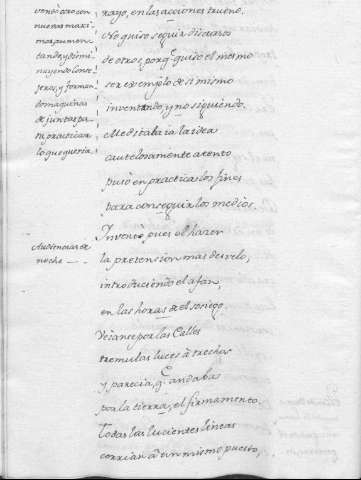 rayo, en las acciones trueno.
No quiso seguir dictamos
de otros, porq. quiso el mesmo
ser exemplo de si mismo
inventando, y no siguiendo.
Meditaba ia la idea
cautelosamente atento
puso en practica los fines
para conseguir los medios.
Inventò pues el hazer
la pretension mas desvelo,
introduciendo el afan,
en las horas de el sosiego.
Veianse por las Calles
tremulas luces à trechos
y parecia, q. andaba
por la tierra, el firmamento.
Todas las lucientes lineas
corrian à un mismo puesto,
nuevas maxi
mas, aumen
tando, y dismi
nuyendo Conse
jeros, y forman
do maquinas
de juntas pa
ra practicar
lo que queria.
Audiencias de
noche